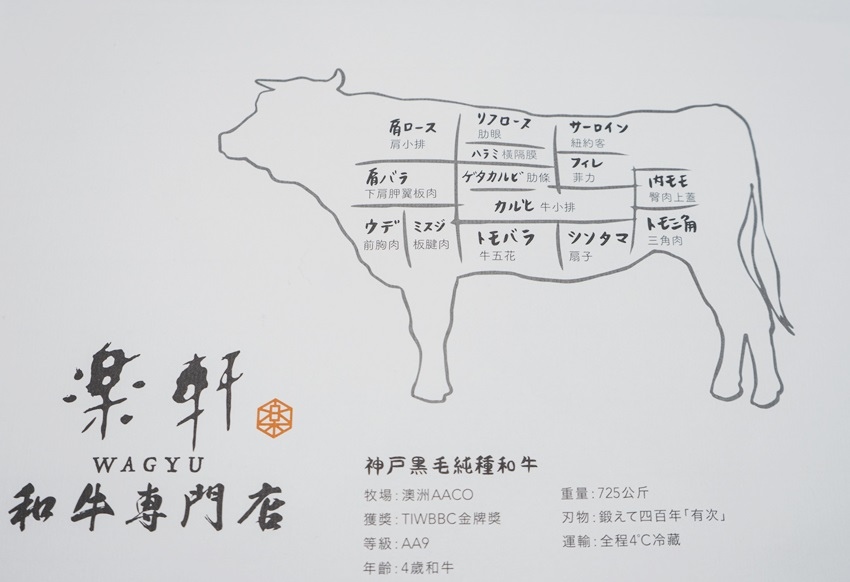 肩ロース
肩小排
リブロース
肋眼
サーロイン
紐約客
ハラミ 橫隔膜
フィレ
菲力
肩バラ
下肩胛翼板肉
ゲタカルビ 肋條
内モモ
臀肉上蓋
カルビ 牛小排
ウデ
前胸肉
ミスジ
板腱肉
トモバラ
牛五花
シンタマ
扇子
トモ三角
三角肉
楽軒
WAGYU
和牛専門店
神戸黒毛純種和牛
牧場:澳洲AACO
獲獎:TIWBBC金牌獎
等級:AA9
年齡:4歲和牛
重量:725公斤
刃物:鍛えて四百年「有次」
運輸:全程4°C冷藏